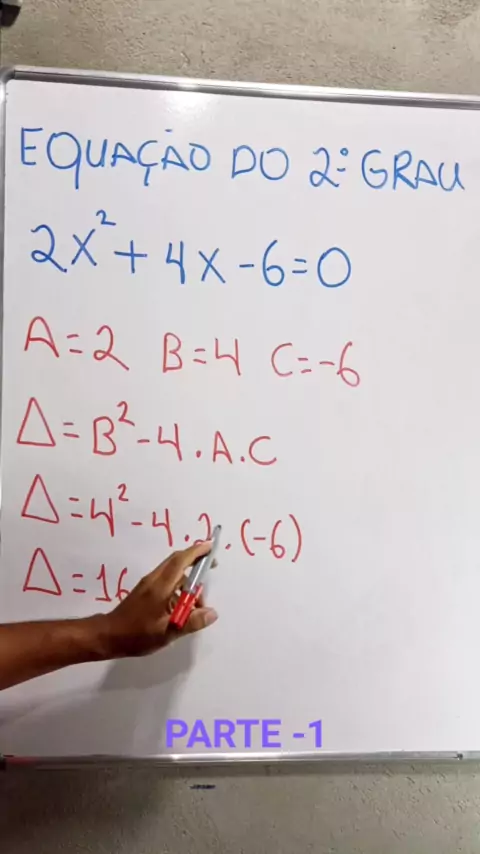 EQUAÇÃO DO 2º GRAU
2x² + 4x - 6 = 0
A = 2 B = 4 C = -6
Δ = B² - 4 . A . C
Δ = 4² - 4 . 2 . (-6)
Δ = 16
PARTE -1